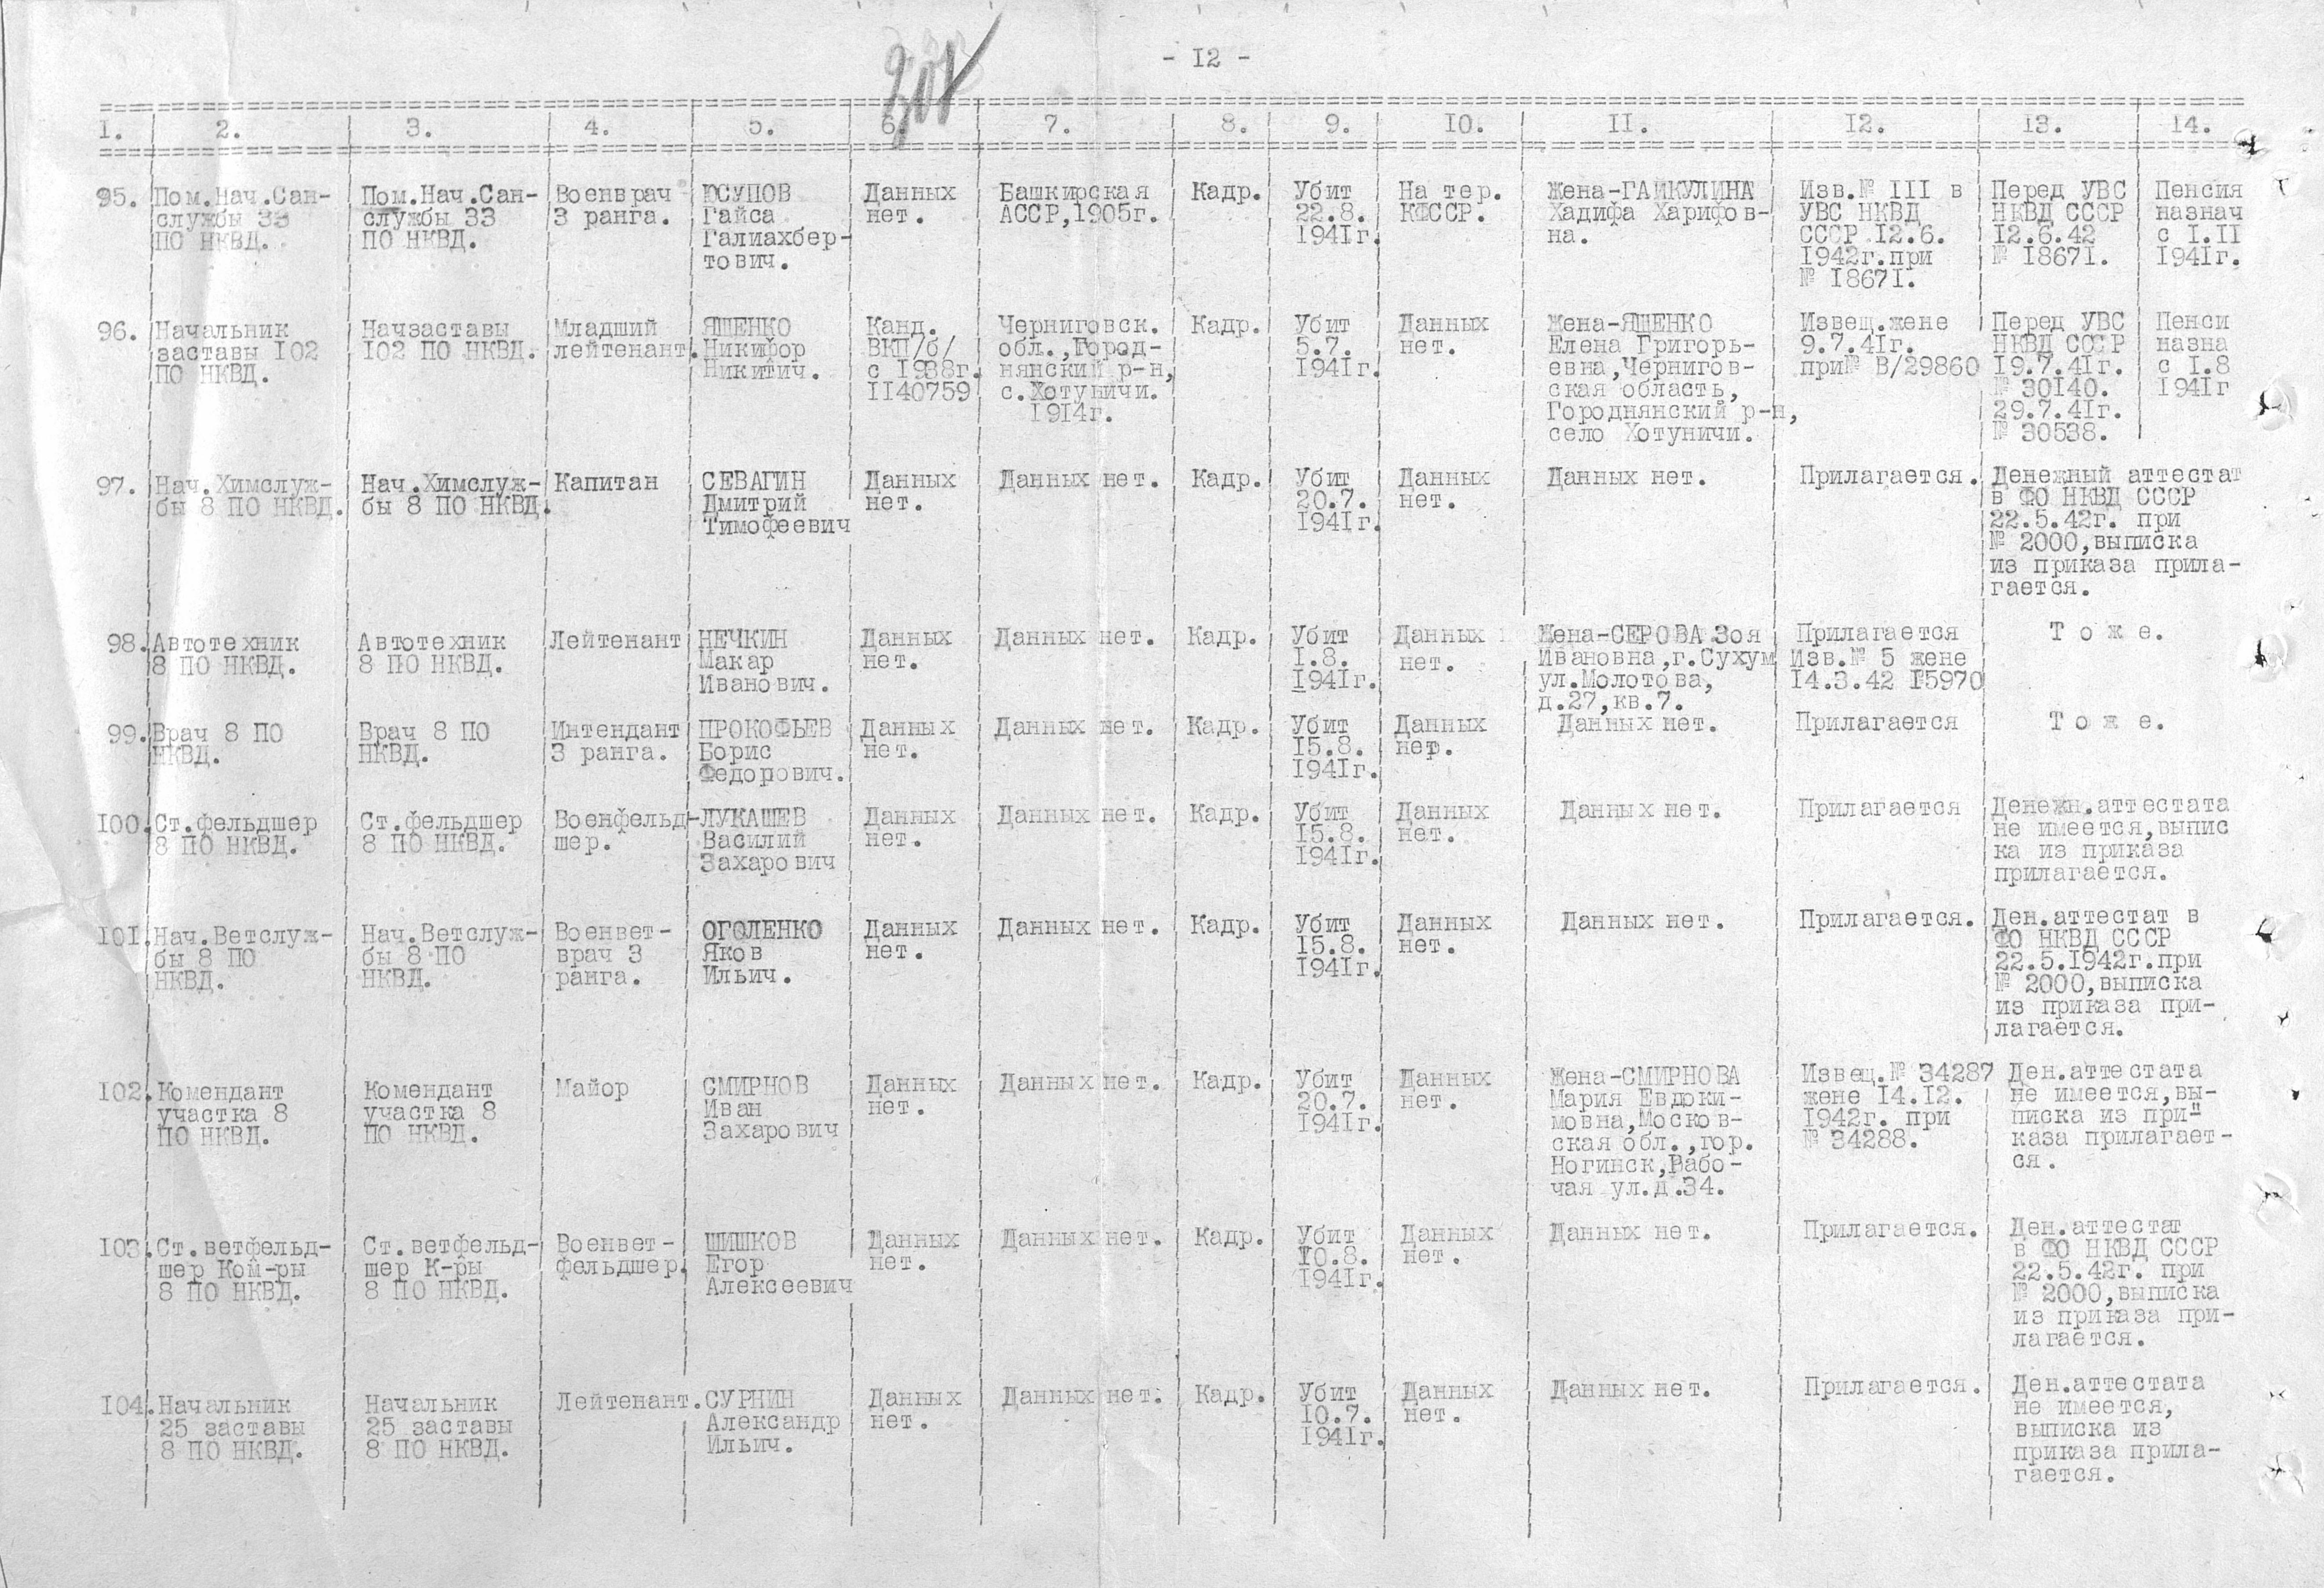 - I2 -
I. 2. 3. 4. 5. 6. 7. 8. 9. IO. II. I2. I3. I4.
95. Пом.Нач.Сан-
службы 33
ПО НКВД.
Пом.Нач.Сан-
службы 33
ПО НКВД.
Военврач
3 ранга.
ЮСУПОВ
Гайса
Галиахбер-
тович.
Данных
нет.
Башкирская
АССР,I905г.
Кадр.
Убит
22.8.
I94Iг.
На тер.
КФССР.
Жена-ГАЙКУЛИНА
Хадифа Харифов-
на.
Изв.№ III в
УВС НКВД
СССР I2.6.
I942г.при
№ I867I.
Перед УВС
НКВД СССР
I2.6.42
№ I867I.
Пенсия
назнач
с I.II
I94Iг.
96. Начальник
заставы I02
ПО НКВД.
Начзаставы
I02 ПО НКВД.
Младший
лейтенант.
ЯШЕНКО
Никифор
Никитич.
Канд.
ВКП/б/
с I938г.
II40759
Черниговск.
обл.,Город-
нянский р-н,
с.Хотуничи.
I9I4г.
Кадр.
Убит
5.7.
I94Iг.
Данных
нет.
Жена-ЯШЕНКО
Елена Григорь-
евна,Чернигов-
ская область,
Городнянский р-н,
село Хотуничи.
Извещ.жене
9.7.4Iг.
при№ В/29860
Перед УВС
НКВД СССР
I9.7.4Iг.
№ 30I40.
29.7.4Iг.
№ 30538.
Пенси
назна
с I.8
I94Iг
97. Нач.Химслуж-
бы 8 ПО НКВД.
Нач.Химслуж-
бы 8 ПО НКВД.
Капитан
СЕВАГИН
Дмитрий
Тимофеевич
Данных
нет.
Данных нет.
Кадр.
Убит
20.7.
I94Iг.
Данных
нет.
Данных нет.
Прилагается.
Денежный аттестат
в ФО НКВД СССР
22.5.42г. при
№ 2000,выписка
из приказа прила-
гается.
98. Автотехник
8 ПО НКВД.
Автотехник
8 ПО НКВД.
Лейтенант
НЕЧКИН
Макар
Иванович.
Данных
нет.
Данных нет.
Кадр.
Убит
I.8.
I94Iг.
Данных
нет.
Жена-СЕРОВА Зоя
Ивановна,г.Сухум
ул.Молотова,
д.27,кв.7.
Прилагается
Изв.№ 5 жене
I4.3.42 №5970
Т о ж е.
99. Врач 8 ПО
НКВД.
Врач 8 ПО
НКВД.
Интендант
3 ранга.
ПРОКОФЬЕВ
Борис
Федорович.
Данных
нет.
Данных нет.
Кадр.
Убит
I5.8.
I94Iг.
Данных
нет.
Данных нет.
Прилагается
Т о ж е.
I00. Ст.фельдшер
8 ПО НКВД.
Ст.фельдшер
8 ПО НКВД.
Военфельд-
шер.
ЛУКАШЕВ
Василий
Захарович
Данных
нет.
Данных нет.
Кадр.
Убит
I5.8.
I94Iг.
Данных
нет.
Данных нет.
Прилагается
Денежн.аттестата
не имеется,выпис
ка из приказа
прилагается.
I0I. Нач.Ветслуж-
бы 8 ПО
НКВД.
Нач.Ветслуж-
бы 8 ПО
НКВД.
Военвет-
врач 3
ранга.
ОГОЛЕНКО
Яков
Ильич.
Данных
нет.
Данных нет.
Кадр.
Убит
I5.8.
I94Iг.
Данных
нет.
Данных нет.
Прилагается.
Ден.аттестат в
ФО НКВД СССР
22.5.I942г.при
№ 2000,выписка
из приказа при-
лагается.
I02. Комендант
участка 8
ПО НКВД.
Комендант
участка 8
ПО НКВД.
Майор
СМИРНОВ
Иван
Захарович
Данных
нет.
Данных нет.
Кадр.
Убит
20.7.
I94Iг.
Данных
нет.
Жена-СМИРНОВА
Мария Евдоки-
мовна,Москов-
ская обл.,гор.
Ногинск,Рабо-
чая ул.д.34.
Извещ.№ 34287
жене I4.I2.
I942г. при
№ 34288.
Ден.аттестата
не имеется,вы-
писка из при-
каза прилагает-
ся.
I03. Ст.ветфельд-
шер Ком-ры
8 ПО НКВД.
Ст.ветфельд-
шер К-ры
8 ПО НКВД.
Военвет-
фельдшер.
ШИШКОВ
Егор
Алексеевич
Данных
нет.
Данных нет.
Кадр.
Убит
I0.8.
I94Iг.
Данных
нет.
Данных нет.
Прилагается.
Ден.аттестат
в ФО НКВД СССР
22.5.42г. при
№ 2000,выписка
из приказа при-
лагается.
I04. Начальник
25 заставы
8 ПО НКВД.
Начальник
25 заставы
8 ПО НКВД.
Лейтенант.
СУРНИН
Александр
Ильич.
Данных
нет.
Данных нет.
Кадр.
Убит
I0.7.
I94Iг.
Данных
нет.
Данных нет.
Прилагается.
Ден.аттестата
не имеется,
выписка из
приказа прила-
гается.